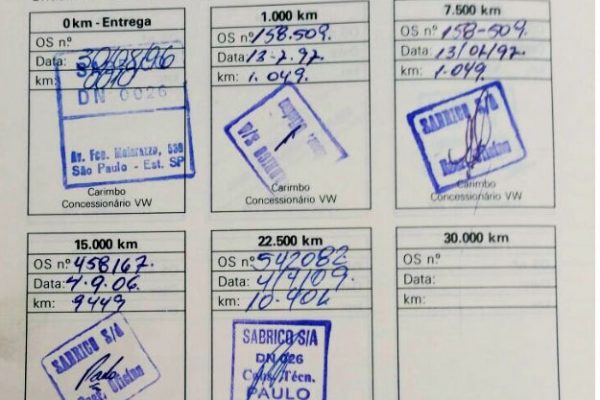 0 km - Entrega
OS n.º
Data: 30/08/96
km: 0010
DN 0026
Av. Fco. Matarazzo, 530
São Paulo - Est. SP
Carimbo
Concessionário VW
1.000 km
OS n.º 158.509.
Data: 13-2.97.
km: 1.049.
SABRICO S/A
Carimbo
Concessionário VW
7.500 km
OS n.º 158-509.
Data: 13/02/97.
km: 1.049.
SABRICO S/A
Carimbo
Concessionário VW
15.000 km
OS n.º 458167.
Data: 4.9.06.
km: 9449
SABRICO S/A
22.500 km
OS n.º 542082
Data: 4/9/09.
km: 10.904
SABRICO S/A
DN 026
Cons. Técn.
PAULO
30.000 km
OS n.º
Data:
km: